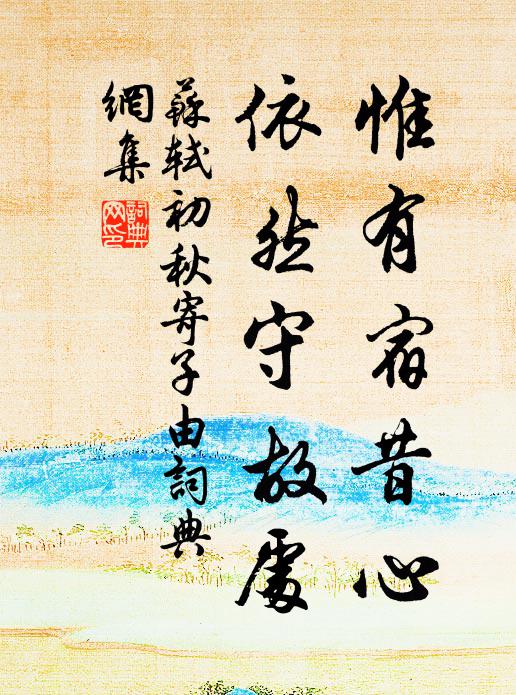 惟有宿昔心
依然守故處
蘇軾初秋寄子由詞典
網集
詞典網印